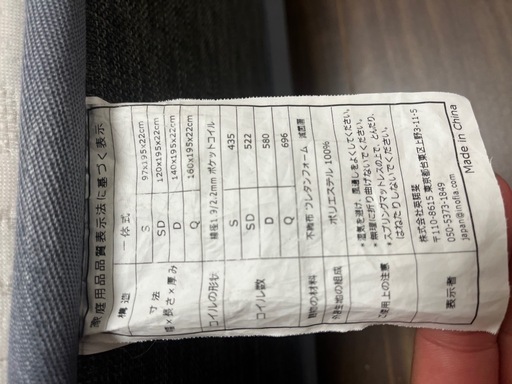 家庭用品品質表示法に基づく表示
構造 一体式
寸法 S 97x195x22cm
幅×長さ×厚み SD 120x195x22cm
D 140x195x22cm
Q 160x195x22cm
コイルの形状 線径1.9/2.2mm ポケットコイル
コイル数 S 435
SD 522
D 580
Q 696
詰物の材料 不織布 ウレタンフォーム
外装生地の組成 ポリエステル 100%
ご使用上の注意 *湿気を避け、風通しをよくしてください。
*無理に折り曲げないでください。
*スプリングマットレスの上で、とんだり、
はねたりしないでください。
表示者 株式会社英瑞斐
〒110-8615 東京都台東区上野3-11-5
050-5373-1849
japan@inofia.com
Made in China